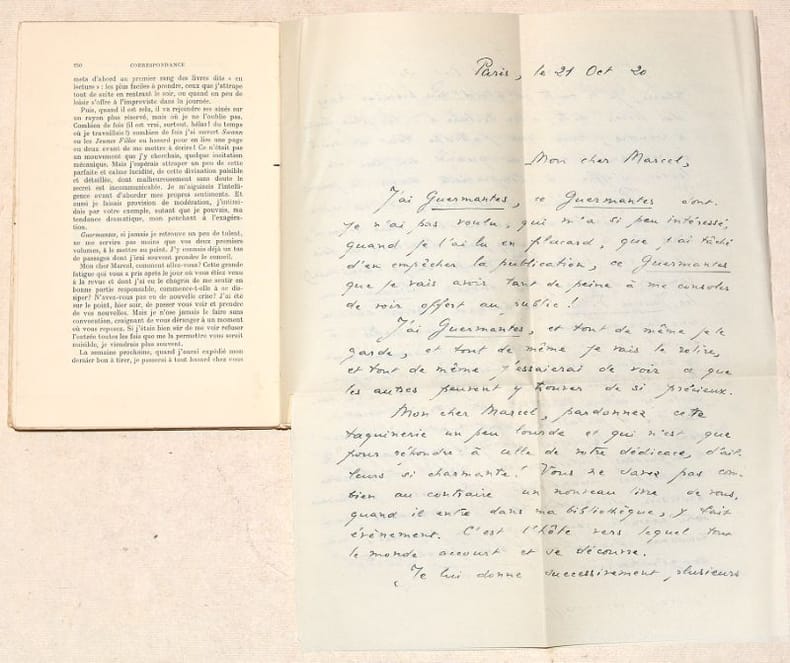 250 CORRESPONDANCE
mets d'abord au premier rang des livres dits « en
lecture » : les plus faciles à prendre, ceux que j'attrape
tout de suite en rentrant le soir, ou quand un peu de
loisir s'offre à l'improviste dans la journée.
Puis, quand il est relu, il va rejoindre ses aînés sur
un rayon plus réservé, mais où je ne l'oublie pas.
Combien de fois (il est vrai, surtout, hélas! du temps
où je travaillais !) combien de fois j'ai ouvert Swann
ou les Jeunes Filles au hasard pour en lire une page
ou deux avant de me mettre à écrire! Ce n'était pas
un mouvement que j'y cherchais, quelque incitation
mécanique. Mais j'espérais attraper un peu de cette
parfaite et calme lucidité, de cette divination paisible
et détaillée, dont malheureusement sans doute le
secret est incommunicable. Je m'aiguisais l'intelli-
gence avant d'aborder mes propres sentiments. Et
aussi je faisais provision de modération, j'intimi-
dais par votre exemple, autant que je pouvais, ma
tendance dramatique, mon penchant à l'exagéra-
tion.
Guermantes, si jamais je retrouve un peu de talent,
ne me servira pas moins que vos deux premiers
volumes, à le mettre au point. J'y connais déjà un tas
de passages dont j'irai souvent prendre le conseil.
Mon cher Marcel, comment allez-vous? Cette grande
fatigue qui vous a pris après le jour où vous étiez venu
à la revue et dont j'ai eu le chagrin de me sentir en
bonne partie responsable, commence-t-elle à se dis-
siper? N'avez-vous pas eu de nouvelle crise? J'ai été
sur le point, hier soir, de passer vous voir et prendre
de vos nouvelles. Mais je n'ose jamais le faire sans
convocation, craignant de vous déranger à un moment
où vous reposez. Si j'étais bien sûr de me voir refuser
l'entrée toutes les fois que me la permettre vous serait
nuisible, je viendrais plus souvent.
La semaine prochaine, quand j'aurai expédié mon
dernier bon à tirer, je passerai à tout hasard chez vous
Paris, le 21 Oct 20
Mon cher Marcel,
J'ai Guermantes, ce Guermantes dont
je n'ai pas voulu, qui m'a si peu intéressé,
quand je l'ai lu en placard, que j'ai tâché
d'en empêcher la publication, ce Guermantes
que je vais avoir tant de peine à me consoler
de voir offert au public !
J'ai Guermantes, et tout de même je le
garde, et tout de même je vais le relire,
et tout de même j'essaierai de voir ce que
les autres peuvent y trouver de si précieux.
Mon cher Marcel, pardonnez cette
taquinerie un peu lourde et qui n'est que
pour répondre à celle de votre dédicace, d'ail-
leurs si charmante! Vous ne savez pas com-
bien au contraire un nouveau livre de vous,
quand il entre dans ma bibliothèque, y fait
évènement. C'est l'hôte vers lequel tout
le monde accourt et se découvre.
Je lui donne successivement plusieurs